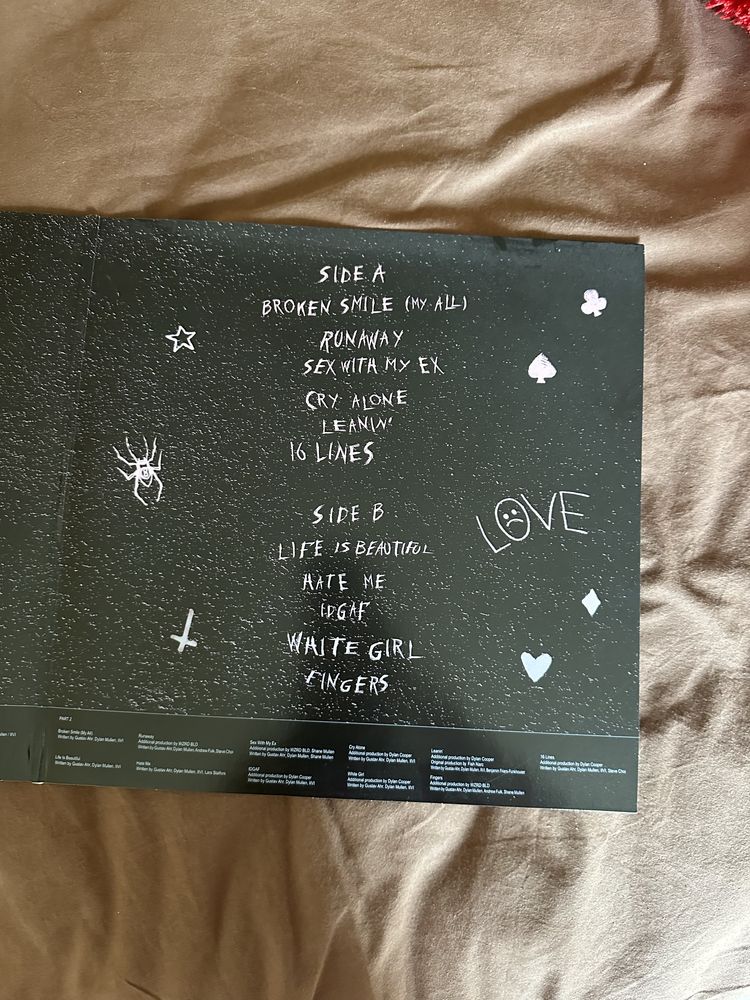 SIDE A
BROKEN SMILE (MY ALL)
RUNAWAY
SEX WITH MY EX
CRY ALONE
LEANIN'
16 LINES
SIDE B
LIFE IS BEAUTIFUL
HATE ME
IDGAF
WHITE GIRL
FINGERS
LOVE
PART 2
Broken Smile (My All)
Written by Gustav Ahr, Dylan Mullen, IIVI
Life Is Beautiful
Written by Gustav Ahr, Dylan Mullen, IIVI
Runaway
Additional production by WIZRD BLD
Written by Gustav Ahr, Dylan Mullen, Andrew Fulk, Steve Choi
Hate Me
Written by Gustav Ahr, Dylan Mullen, IIVI, Lars Stalfors
Sex With My Ex
Additional production by WIZRD BLD, Shane Mullen
Written by Gustav Ahr, Dylan Mullen, Shane Mullen
IDGAF
Additional production by Dylan Cooper
Written by Gustav Ahr, Dylan Mullen, IIVI
Cry Alone
Additional production by Dylan Cooper
Written by Gustav Ahr, Dylan Mullen, IIVI
White Girl
Additional production by Dylan Cooper
Written by Gustav Ahr, Dylan Mullen, IIVI
Leanin'
Additional production by Dylan Cooper
Original production by Fish Narc
Written by Gustav Ahr, Dylan Mullen, IIVI, Benjamin Friars-Funkhouser
Fingers
Additional production by WIZRD BLD
Written by Gustav Ahr, Dylan Mullen, Andrew Fulk, Shane Mullen
16 Lines
Additional production by Dylan Cooper
Written by Gustav Ahr, Dylan Mullen, IIVI, Steve Choi